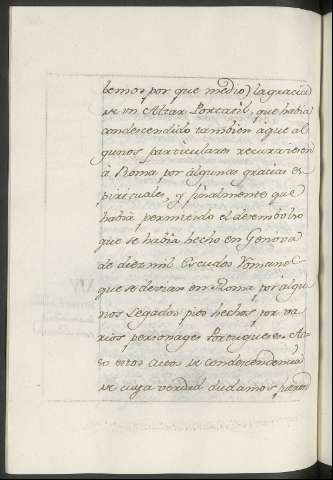 bemos por que medio) la gracia
de un Altar Portatil, que habia
condescendido tambien à que al
gunos particulares recurriesen
à Roma por algunas gracias es
pirituales, y finalmente que
habia permitido el desembolso
que se habia hecho en Genova
de diez mil Escudos Romanos
que se devian en Roma por algu
nos Legados pios hechos por va
rios personages Portugueses.
estos actos de condescendencia
de cuya verdad dudamos,